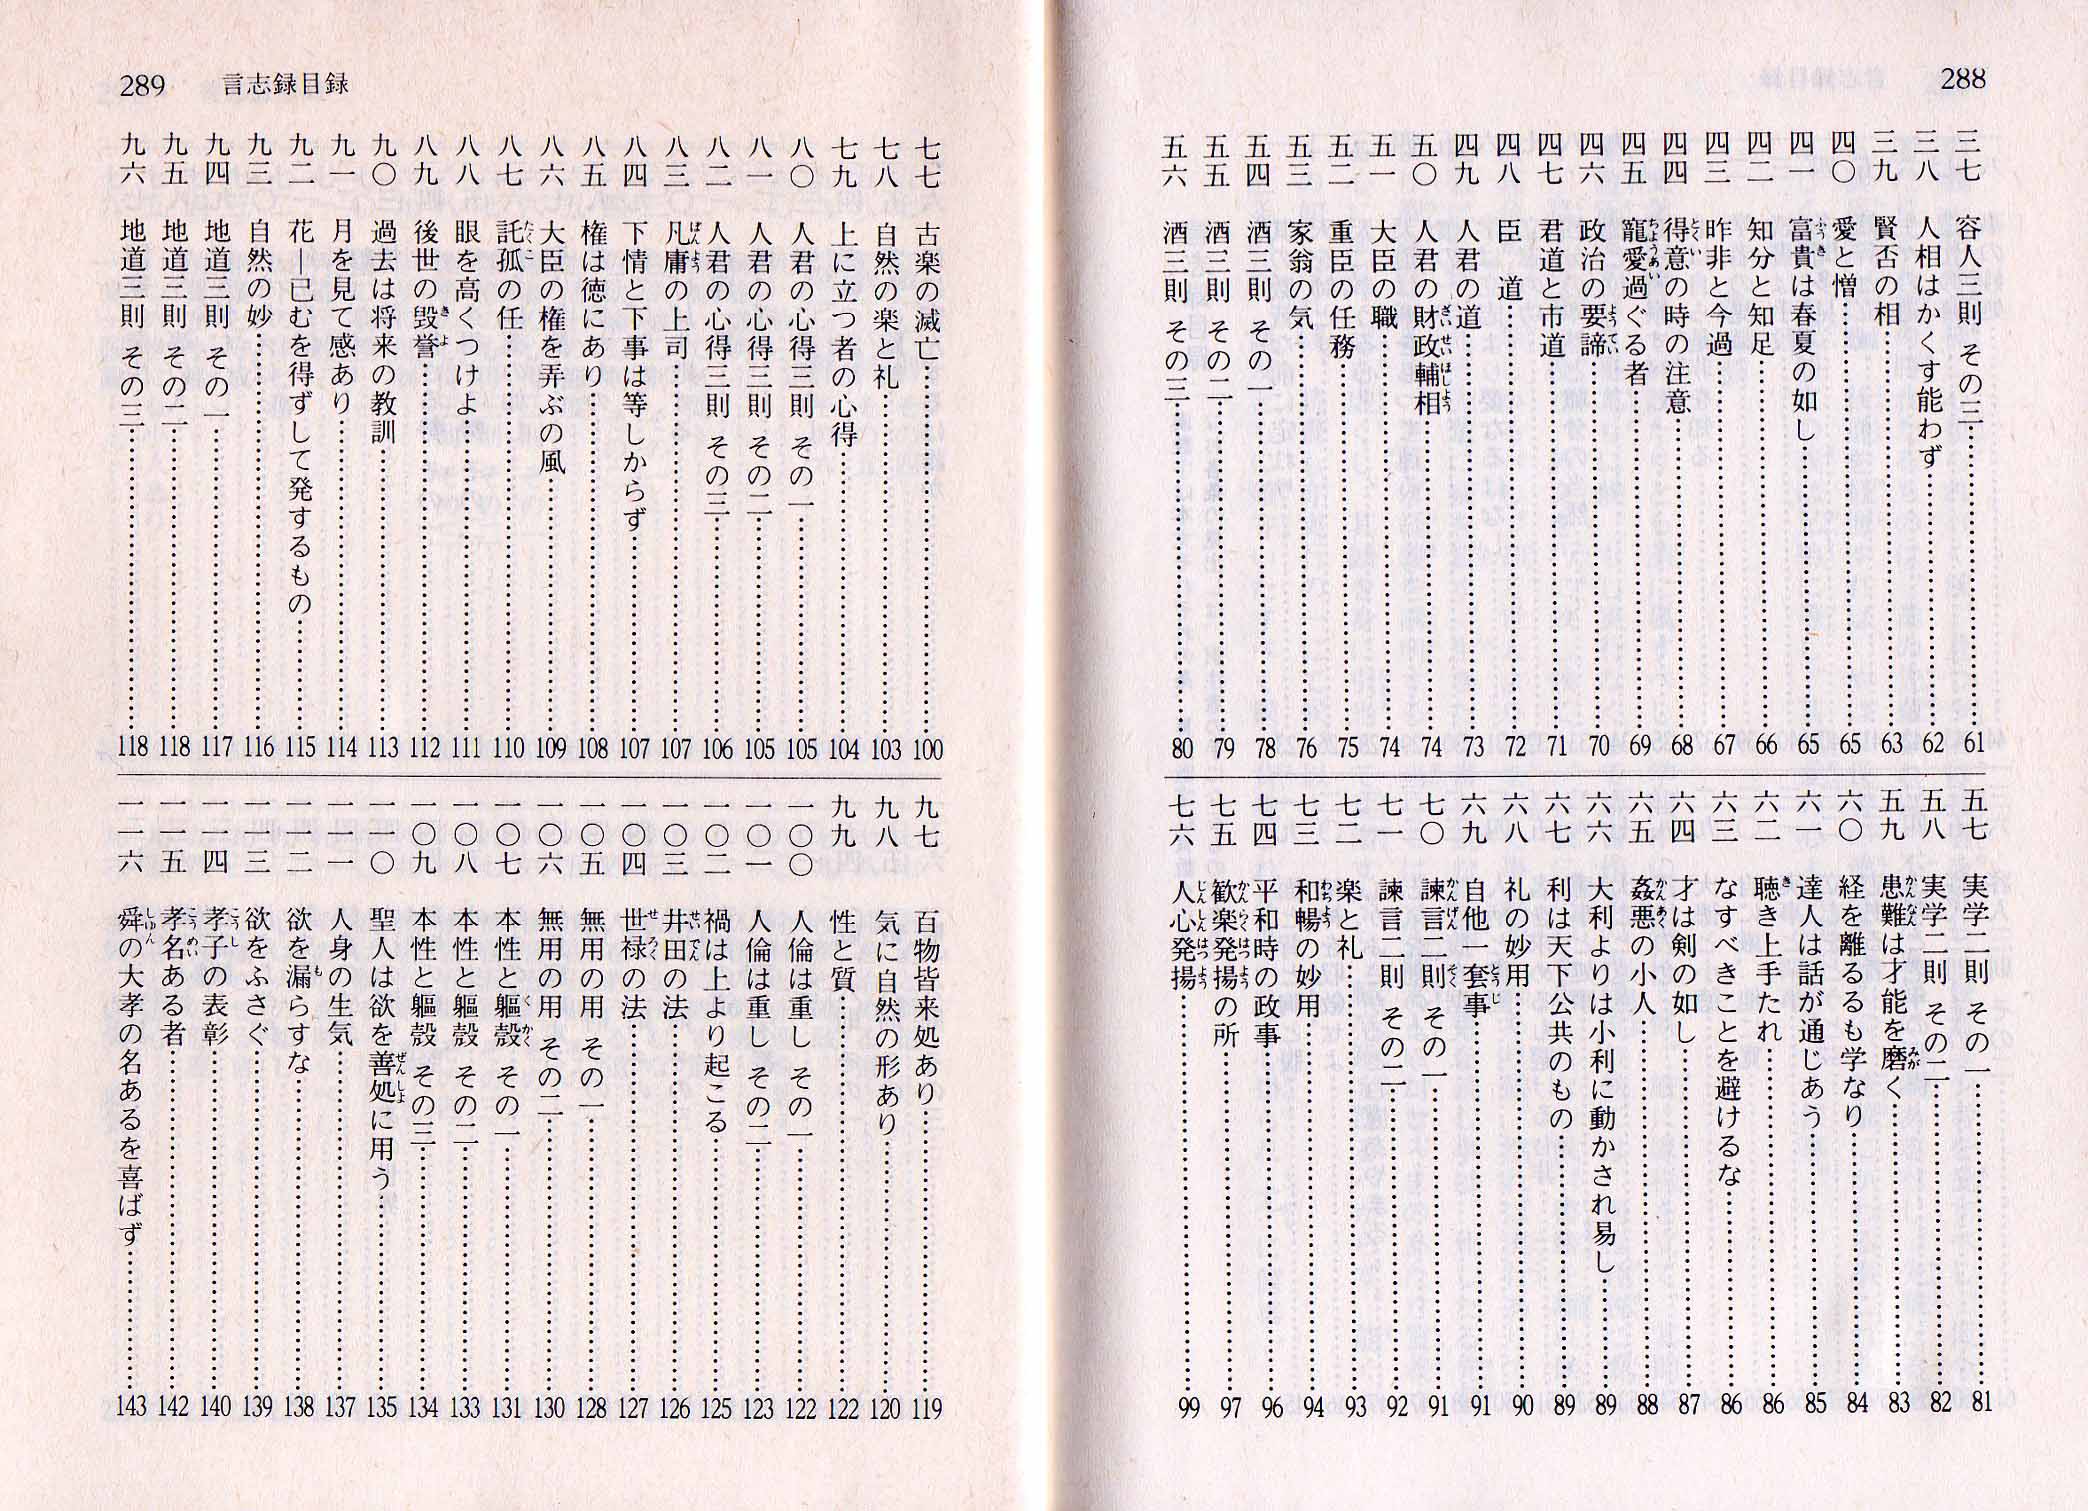 288
三七 容人三則 その三 61
三八 人相はかくす能わず 62
三九 賢否の相 63
四〇 愛と憎 65
四一 富貴は春夏の如し 65
四二 知分と知足 66
四三 昨非と今過 67
四四 得意の時の注意 68
四五 寵愛過ぐる者 69
四六 政治の要諦 70
四七 君道と市道 71
四八 臣 道 72
四九 人君の道 73
五〇 人君の財政輔相 74
五一 大臣の職 74
五二 重臣の任務 75
五三 家翁の気 76
五四 酒三則 その一 78
五五 酒三則 その二 79
五六 酒三則 その三 80
五七 実学二則 その一 81
五八 実学二則 その二 82
五九 患難は才能を磨く 83
六〇 経を離るるも学なり 84
六一 達人は話が通じあう 85
六二 聴き上手たれ 86
六三 なすべきことを避けるな 86
六四 才は剣の如し 87
六五 姦悪の小人 88
六六 大利よりは小利に動かされ易し 89
六七 利は天下公共のもの 89
六八 礼の妙用 90
六九 自他一套事 91
七〇 諫言二則 その一 91
七一 諫言二則 その二 92
七二 楽と礼 93
七三 和暢の妙用 94
七四 平和時の政事 96
七五 歓楽発揚の所 97
七六 人心発揚 99
289 言志録目録
七七 古楽の滅亡 100
七八 自然の楽と礼 103
七九 上に立つ者の心得 104
八〇 人君の心得三則 その一 105
八一 人君の心得三則 その二 105
八二 人君の心得三則 その三 106
八三 凡庸の上司 107
八四 下情と下事は等しからず 107
八五 権は徳にあり 108
八六 大臣の権を弄ぶの風 109
八七 託孤の任 110
八八 眼を高くつけよ 111
八九 後世の毀誉 112
九〇 過去は将来の教訓 113
九一 月を見て感あり 114
九二 花―已むを得ずして発するもの 115
九三 自然の妙 116
九四 地道三則 その一 117
九五 地道三則 その二 118
九六 地道三則 その三 118
九七 百物皆来処あり 119
九八 気に自然の形あり 120
九九 性と質 122
一〇〇 人倫は重し その一 122
一〇一 人倫は重し その二 123
一〇二 禍は上より起こる 125
一〇三 井田の法 126
一〇四 世禄の法 127
一〇五 無用の用 その一 128
一〇六 無用の用 その二 130
一〇七 本性と軀殻 その一 131
一〇八 本性と軀殻 その二 133
一〇九 本性と軀殻 その三 134
一一〇 聖人は欲を善処に用う 135
一一一 人身の生気 137
一一二 欲を漏らすな 138
一一三 欲をふさぐ 139
一一四 孝子の表彰 140
一一五 孝名ある者 142
一一六 舜の大孝の名あるを喜ばず 143